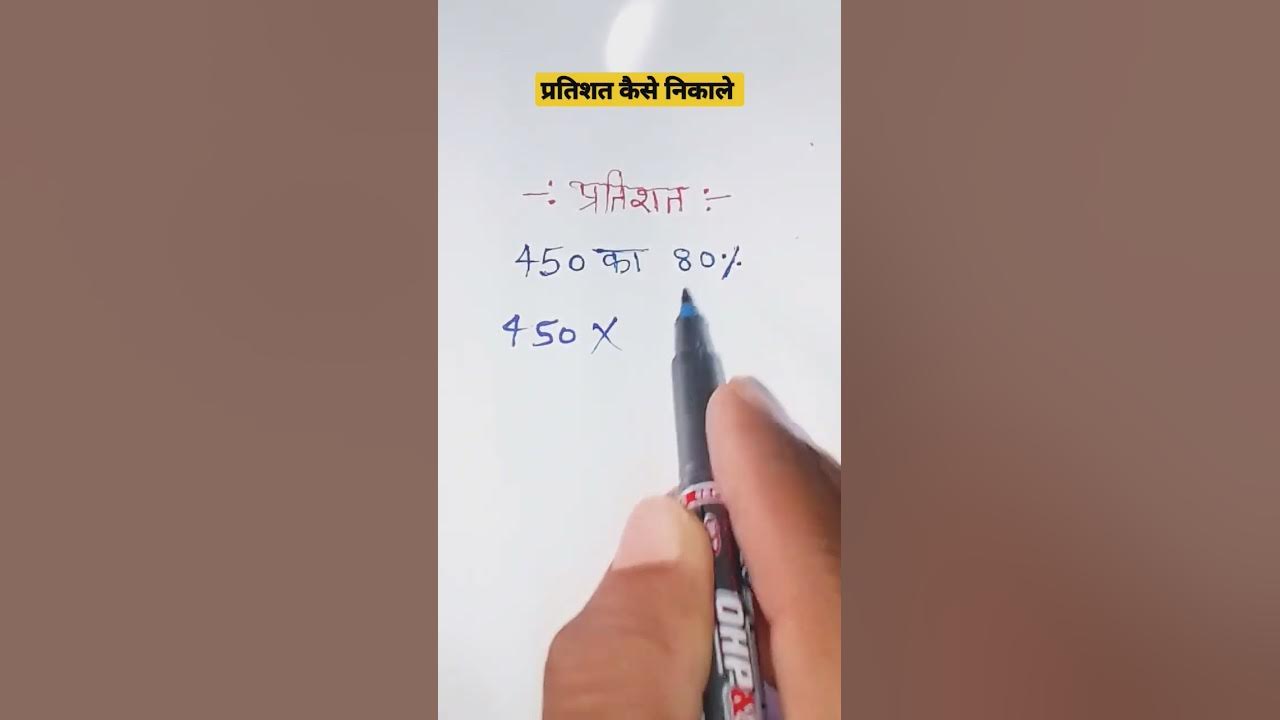 प्रतिशत कैसे निकाले
-: प्रतिशत :-
450 का 80%
450 X
OHP